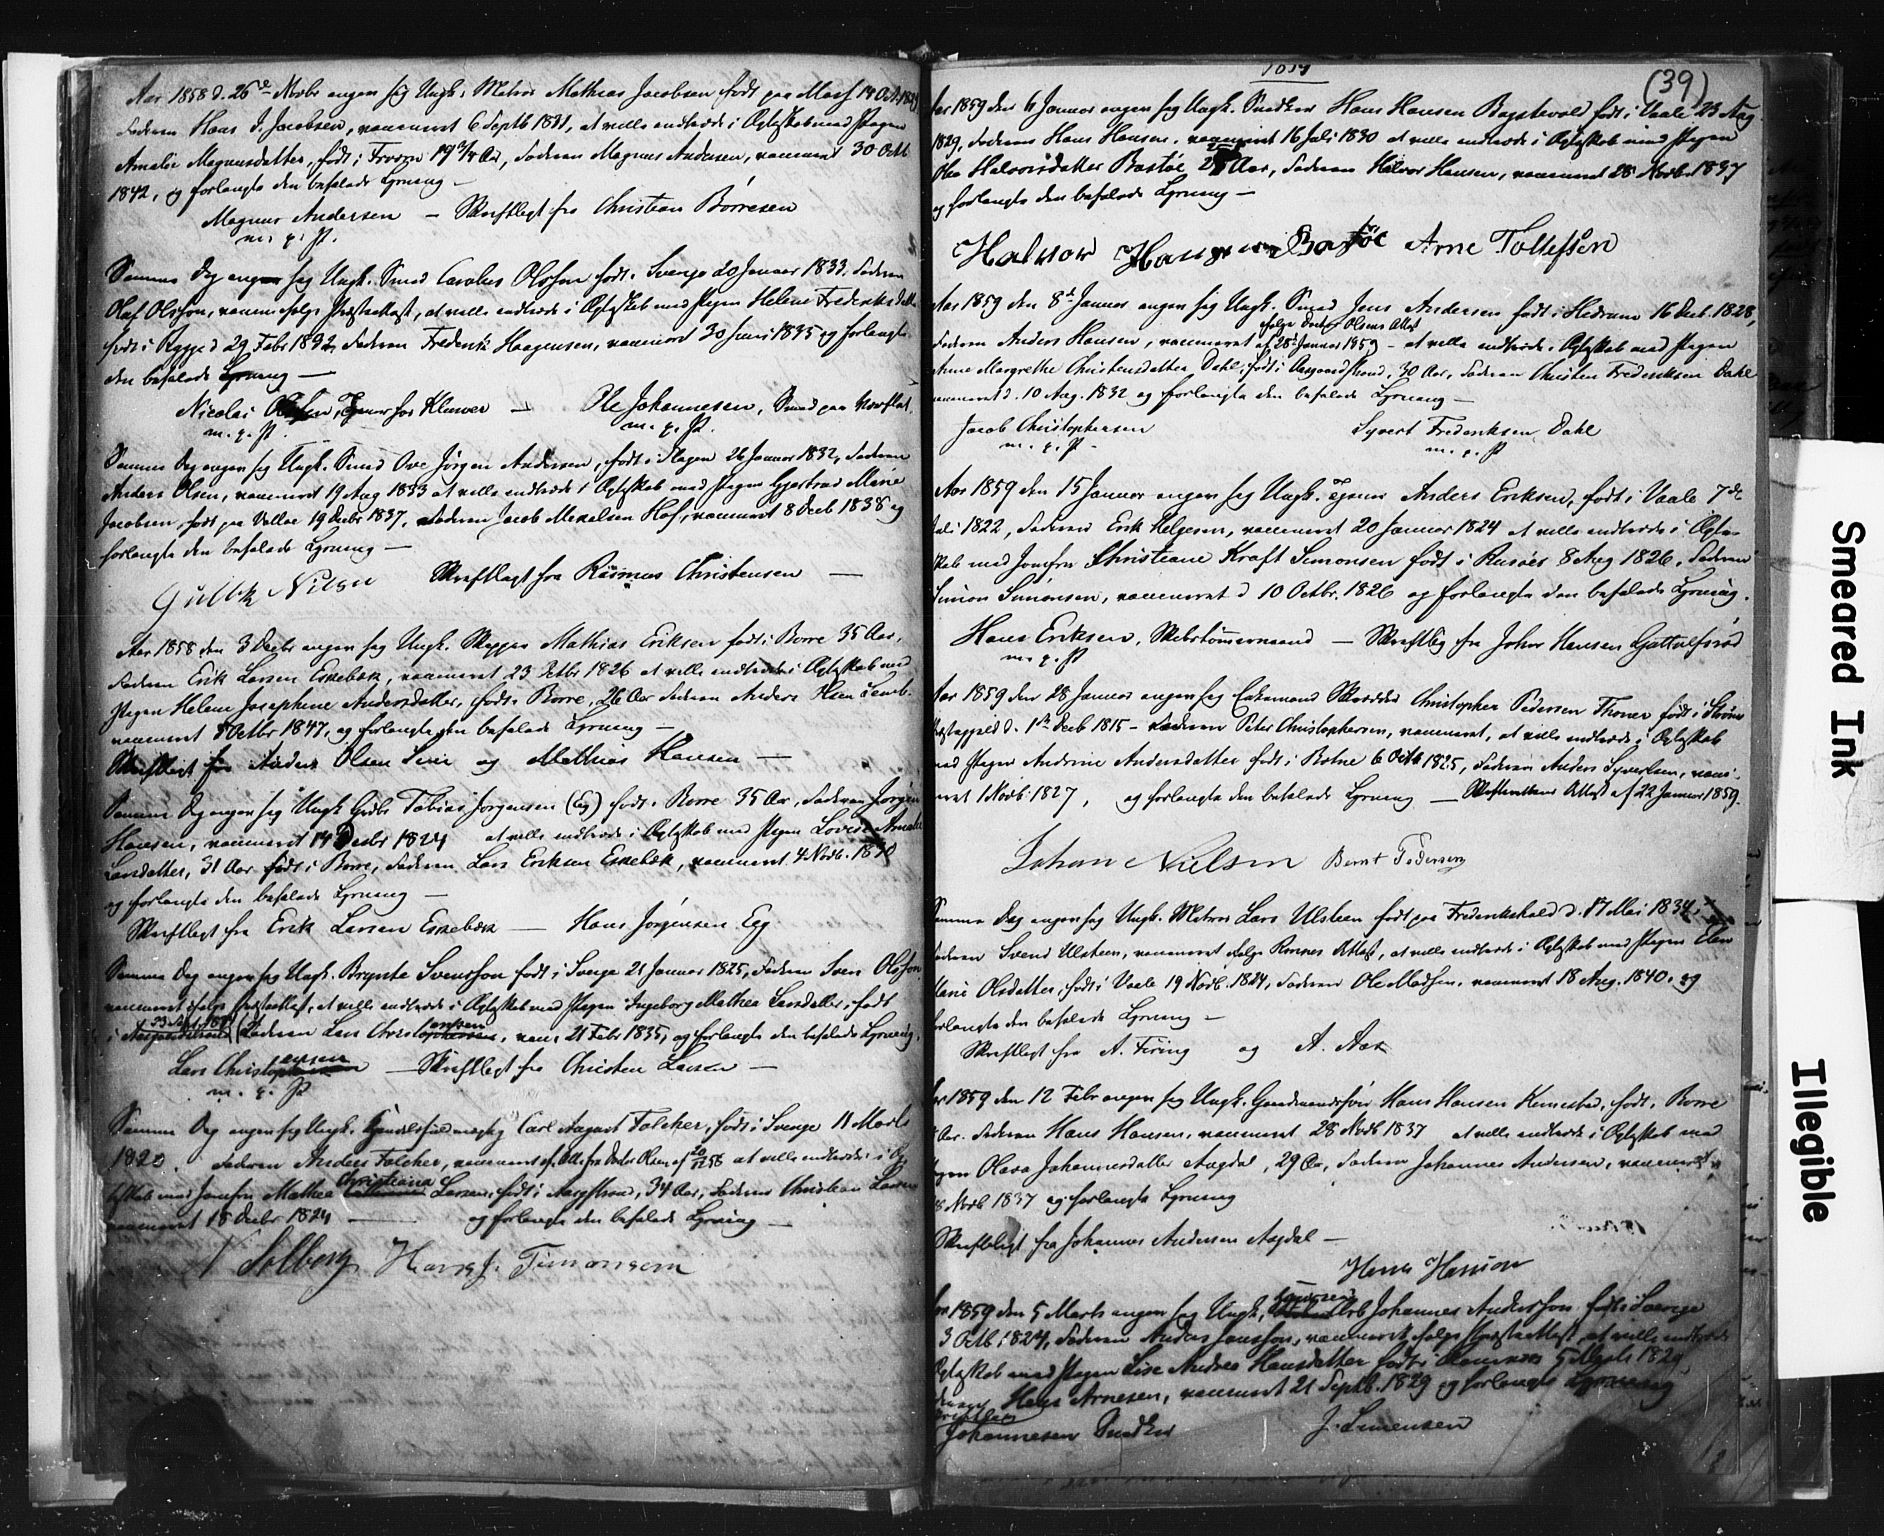 Aar 1858 d. 26de Novbr angav sig Ungk. Matros Mathias Jacobsen født paa Moss 14 Oct.
Faderen Hans J. Jacobsen, vaccineret 6 Septb 1841, at ville indtræde i Ægteskab med Pigen
Amalie Magnusdatter, født i Aar, Faderen Magnus Andersen, vaccineret 30 Octb
1842, og forlangte den befalede Lysning —
Magnus Andersen — Skriftligt fra Christian Börresen
m. p. P.
Samme Dag angav sig Ungk. Smed Carolus Olsson født i Sverige 20 Januar 1833. Faderen
Olof Olsson, vaccin. ifølge Præsteattest, at ville indtræde i Ægteskab med Pigen Helene Frederiksdatter
født i Rygge d 29 Febr 1832, Faderen Frederik Haagensen, vaccineret 30 Juni 1835 og forlangte
den befalede Lysning —
Nicolai — Ole Johannesen, Smed paa
m. p. P. m. p. P.
Samme Dag angav sig Ungk. Smed Ove Jörgen Andersen, født i Slagen 26 Januar 1832, Faderen
Anders Olsen, vaccineret 19 Aug 1833 at ville indtræde i Ægteskab med Pigen Gjertrud Marie
Jacobsen, født paa Valløe 19 Decbr 1837, Faderen Jacob Mikalsen Hof, vaccineret 8 Decb 1838 og
forlangte den befalede Lysning —
Gulbr. Nilsen Skriftligt fra Rasmus Christensen —
Aar 1858 den 3 Decbr angav sig Ungk. Skipper Mathias Eriksen født i Borre 35 Aar,
Faderen Erik Larsen Eskebæk, vaccineret 23 Octbr 1826 at ville indtræde i Ægteskab med
Pigen Helene Josephine Andersdatter, født i Borre, 26 Aar Faderen Anders Olsen
vaccineret 8 Octbr 1847, og forlangte den befalede Lysning —
Skriftligt fra Anders Olsen og Mathias Hansen —
Samme Dag angav sig Ungk. Tobias Jørgensen (Eg) født i Borre 35 Aar, Faderen Jørgen
Hansen, vaccineret 14 Decbr 1824 at ville indtræde i Ægteskab med Pigen Lovise Amalie
Larsdatter, 31 Aar født i Borre, Faderen Lars Eriksen Eskebæk, vaccineret 4 Novb. 1830
og forlangte den befalede Lysning —
Skriftligt fra Erik Larsen Eskebæk — Hans Jørgensen Eg
Samme Dag angav sig Ungk. Brynte Svensson født i Sverige 21 Januar 1825, Faderen Sven Olsson
vaccineret ifølge Præsteattest, at ville indtræde i Ægteskab med Pigen Ingeborg Mathea Larsdatter, født
i Aasgaardstrand, Faderen Lars Christophersen, vacc. 21 Febr 1835, og forlangte den befalede Lysning.
ensen
Lars Christophersen — Skriftligt fra Christen Larsen —
m. p. P
Samme Dag angav sig Ungk. Handelsfuldmægtig Carl August Falcker, født i Sverige 11 Marts
1820. Faderen Anders Falcker, vaccineret at ville indtræde i Æg-
teskab med Jomfru Mathea Christiana Larsen, født i Aasgstrand, 34 Aar, Faderen Christian Larsen
vaccineret 18 Decbr 1824 — og forlangte den befalede Lysning —
N Solberg Hans J. Simonsen
(39)
Aar 1859 den 6 Januar angav sig Ungk. Snedker Hans Hansen født i Vaale 23 Aug
1829, Faderen Hans Hansen, vaccineret 16 Juli 1830 at ville indtræde i Ægteskab med Pigen
Halvorsdatter Bastøe Aar, Faderen Halvor Hansen, vaccineret 28 Novb. 1837
og forlangte den befalede Lysning —
Halvor Hansen Bastøe Arne Tollefsen
Aar 1859 den 8de Januar angav sig Ungk. Smed Jens Andersen født i Hedrum 16 Decb. 1828,
ifølge Doctor Olsens Attest
Faderen Anders Hansen, vaccineret af 28 Januar 1859 — at ville indtræde i Ægteskab med Pigen
Anne Margrethe Christensdatter Dahl, født i Aasgaardstrand, 30 Aar, Faderen Christen Frederiksen Dahl
vaccineret d. 10 Aug. 1832 og forlangte den befalede Lysning —
Jacob Christophersen Syvert Frederiksen Dahl
m. p. P. m. p. P
Aar 1859 den 15 Januar angav sig Ungk. Tjener Anders Eriksen, født i Vaale 7de
Juli 1822, Faderen Erik Helgesen, vaccineret 20 Januar 1824 at ville indtræde i Ægte-
skab med Jomfru Christiane Kraft Simonsen født i Risøer 8 Aug 1826, Faderen
Simon Simonsen, vaccineret d 10 Octbr. 1826 og forlangte den befalede Lysning.
Hans Eriksen, Skibstømmermand — Skriftlig fra Johan Hansen
m. p. P
Aar 1859 den 28 Januar angav sig Enkemand Skrædder Christopher Pedersen Thoner født i
Præstegjeld d. 1ste Decb 1815 — Faderen Peter Christophersen, vaccineret, at ville indtræde i Ægteskab
med Pigen Andrine Andersdatter født i Botne 6 Octb 1825, Faderen Anders Syvertsen, vacci-
neret 1 Novb. 1827, og forlangte den befalede Lysning — Attest af 22 Januar 1859.
Johan Nielsen Bernt Pedersen
Samme Dag angav sig Ungk. Matros Lars Ulsteen født paa Frederikshald d. 17 Mai 1834,
Faderen Svend Ulsteen, vaccineret ifølge Attest, at ville indtræde i Ægteskab med Pigen Elen
Marie Olsdatter, født i Vaale 19 Novb. 1824, Faderen Ole Madsen, vaccineret 18 Aug. 1840, og
forlangte den befalede Lysning —
Skriftligt fra A. Firing og A. Aas
Aar 1859 den 12 Febr angav sig Ungk. Gaardmandssøn Hans Hansen født i Borre
Aar. Faderen Hans Hansen, vaccineret 28 Novb 1837 at ville indtræde i Ægteskab med
Pigen Olava Johannesdatter Aagdal, 29 Aar, Faderen Johannes Andersen, vaccineret
Novb 1837 og forlangte Lysning
Skriftligt fra Johannes Andersen Aagdal —
Hans Hansson
Aar 1859 den 5 Marts angav sig Ungk. Johannes Andersson født i Sverige
3 Octb 1824, Faderen Anders Jonsson, vaccineret ifølge Præsteattest, at ville indtræde
Ægteskab med Pigen Lise Andrea Hansdatter født i 5 1829,
Hans Arnesen, vaccineret 21 Septb. 1829 og forlangte Lysning
Johannesen Snedker J. Simensen
Smeared Ink
Illegible